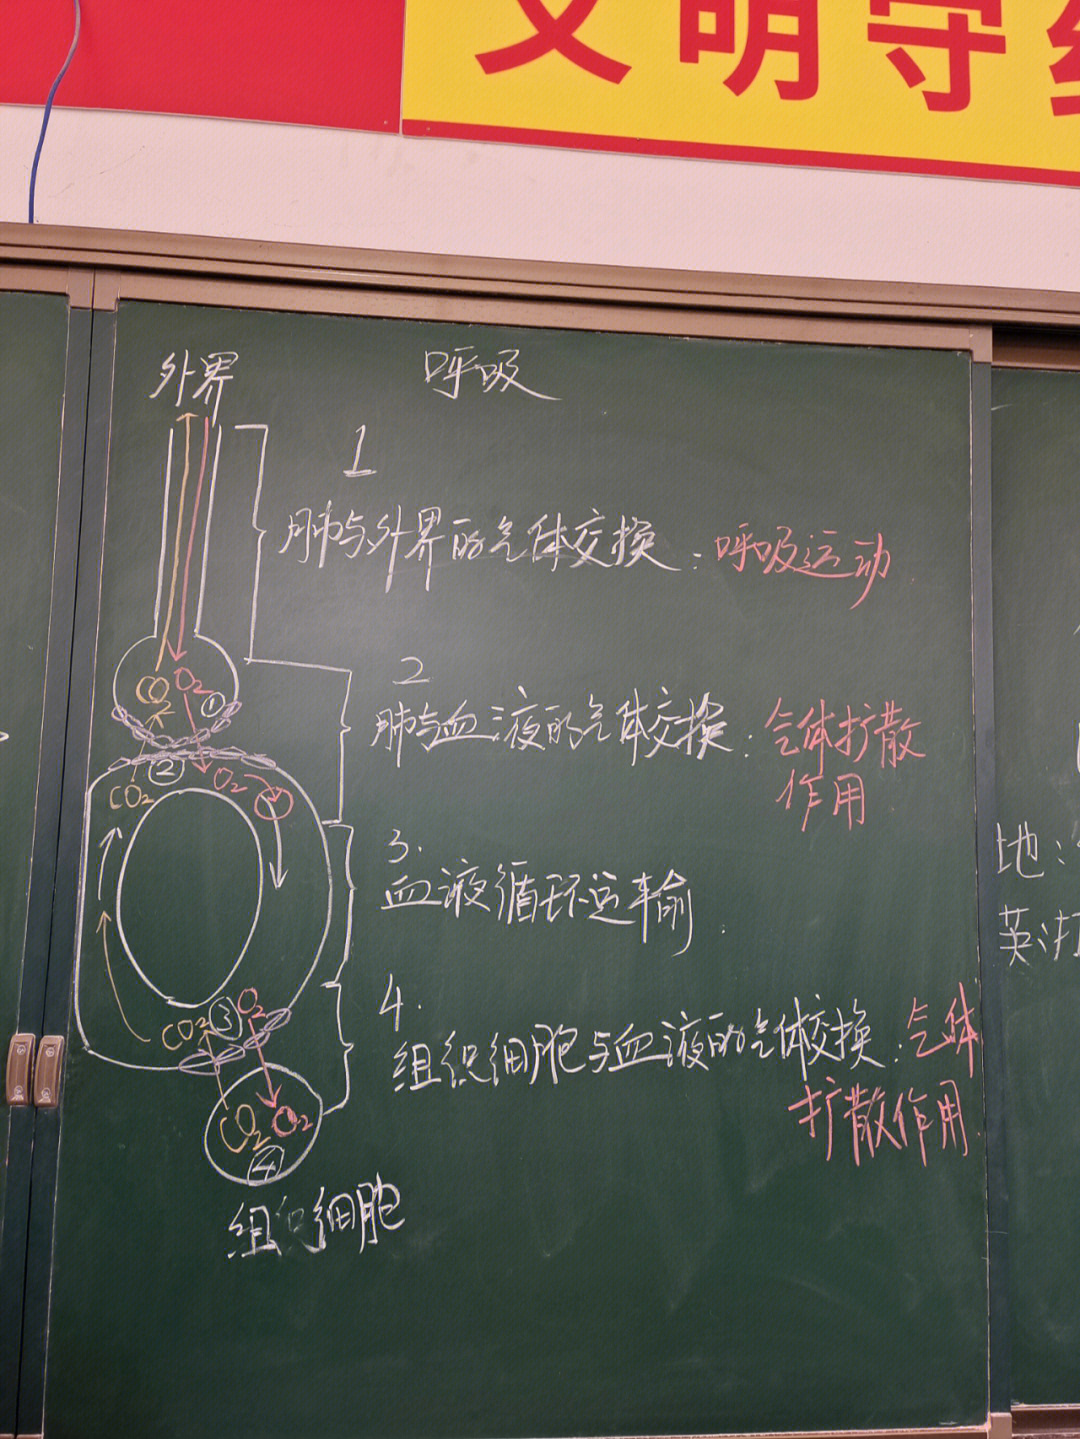 文明守纪
外界
呼吸
1
肺与外界的气体交换：呼吸运动
CO₂ O₂ ①
2
肺与血液的气体交换：气体扩散
作用
② O₂
CO₂
3.
血液循环运输.
4.
组织细胞与血液的气体交换：气体
扩散作用.
CO₂ ③ O₂
CO₂ O₂
④
组织细胞
地：
英：